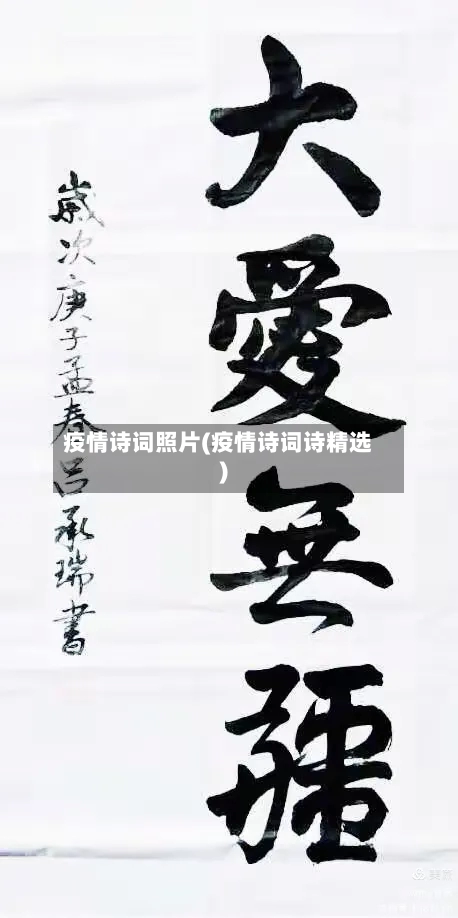 大愛無疆
歲次庚子孟春吕承瑞書
疫情诗词照片(疫情诗词诗精选
)